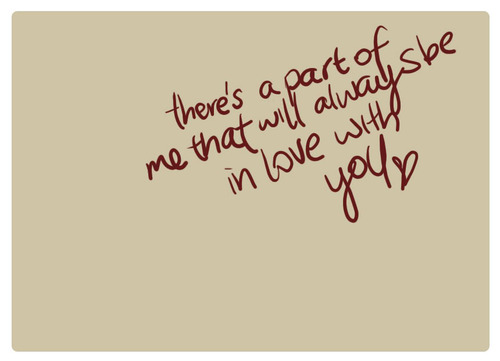 there's a part of
me that will always be
in love with
you♡